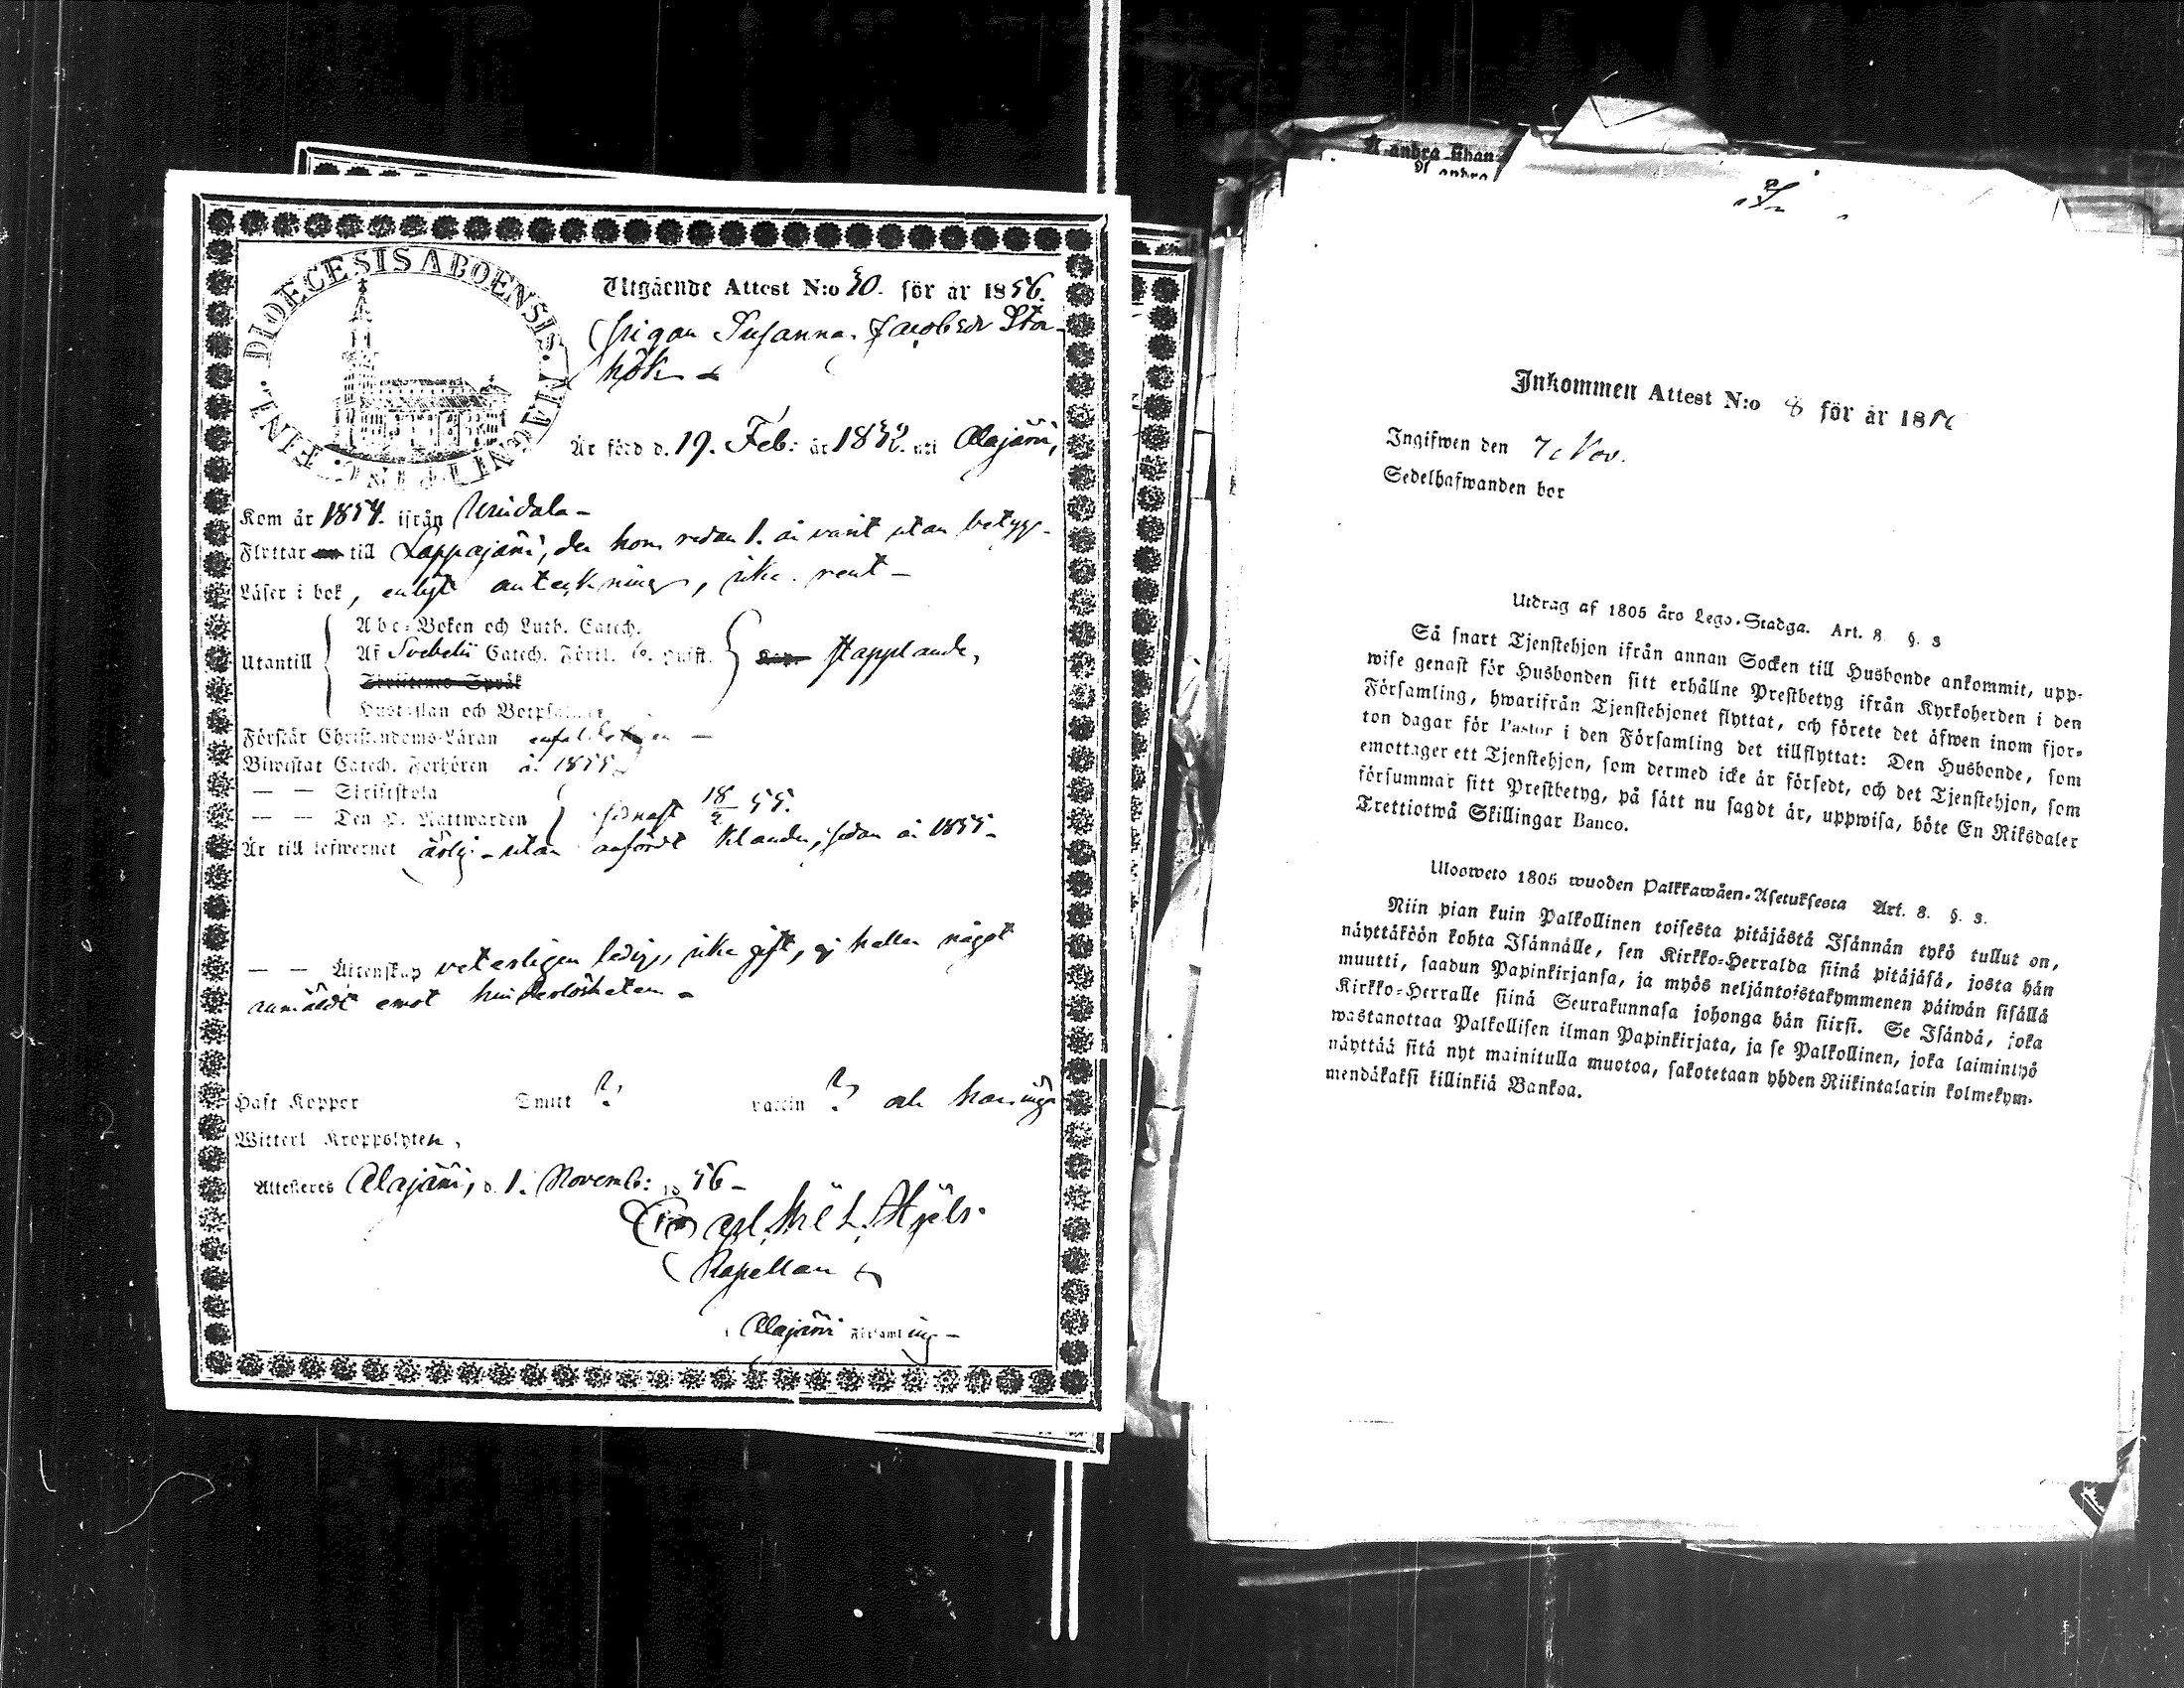 DIOECESIS ABOENSIS. MAGNI PRINC. FINL.
Utgående Attest N:o 30. för år 1856.
Pigan Susanna Jacobsdr Ston-
hök
Är född d. 19. Feb: år 1832. uti Alajärvi,
Kom år 1854. ifrån Vindala -
Flyttar till Lappajärvi, der hon redan 1. år varit utan betyg -
Läser i bok, enligt anteckning, icke rent -
Utantill
Abc-Boken och Luth. Catech.
Af Svebelii Catech. Förkl. 6. quäst.
Christenes Språk
Hustaflan och Botpsalmer
stapplande,
Förstår Christendoms-Läran enfaldeligen -
Biwistat Catech. Förhören å. 1855.
— — Skriftskola
— — Den H. Nattwarden sednast 18/2 55.
Är till lefwernet ärlig - utan anfördt klander, sedan år 1855 -
— — Äktenskap veterligen ledig, icke gift, ej heller något
anmäldt emot hinderlösheten -
Haft Koppor Smitt ? vaccin ? och har inga
Witterl. Kroppslyten,
Attesteras Alajärvi, d. 1. Novemb: 1856 -
Kapellan
i Alajärvi Församling -
A andra sidan
A andra
Inkommen Attest N:o 8 för år 1856
Ingifwen den 7 Nov.
Sedelhafwanden bor
Utdrag af 1805 års Lego-Stadga. Art. 8. §. 3
Så snart Tjenstehjon ifrån annan Socken till Husbonde ankommit, upp-
wise genast för Husbonden sitt erhållne Prestbetyg ifrån Kyrkoherden i den
Församling, hwarifrån Tjenstehjonet flyttat, och förete det äfwen inom fjor-
ton dagar för Pastor i den Församling det tillflyttat: Den Husbonde, som
emottager ett Tjenstehjon, som dermed icke är försedt, och det Tjenstehjon, som
försummar sitt Prestbetyg, på sätt nu sagdt är, uppwisa, böte En Riksdaler
Trettiotwå Skillingar Banco.
Ulosweto 1805 wuoden Palkkawäen-Asetuksesta Art. 8. §. 3.
Niin pian kuin Palkollinen toisesta pitäjästä Isännän tykö tullut on,
näyttäköön kohta Isännälle, sen Kirkko-Herralda siinä pitäjäsä, josta hän
muutti, saadun Papinkirjansa, ja myös neljäntoistakymmenen päiwän sisällä
Kirkko-Herralle siinä Seurakunnasa johonga hän siirsi. Se Isändä, joka
wastanottaa Palkollisen ilman Papinkirjata, ja se Palkollinen, joka laiminlyö
näyttää sitä nyt mainitulla muotoa, sakotetaan yhden Riikintalarin kolmekym-
mendäkaksi killinkiä Bankoa.